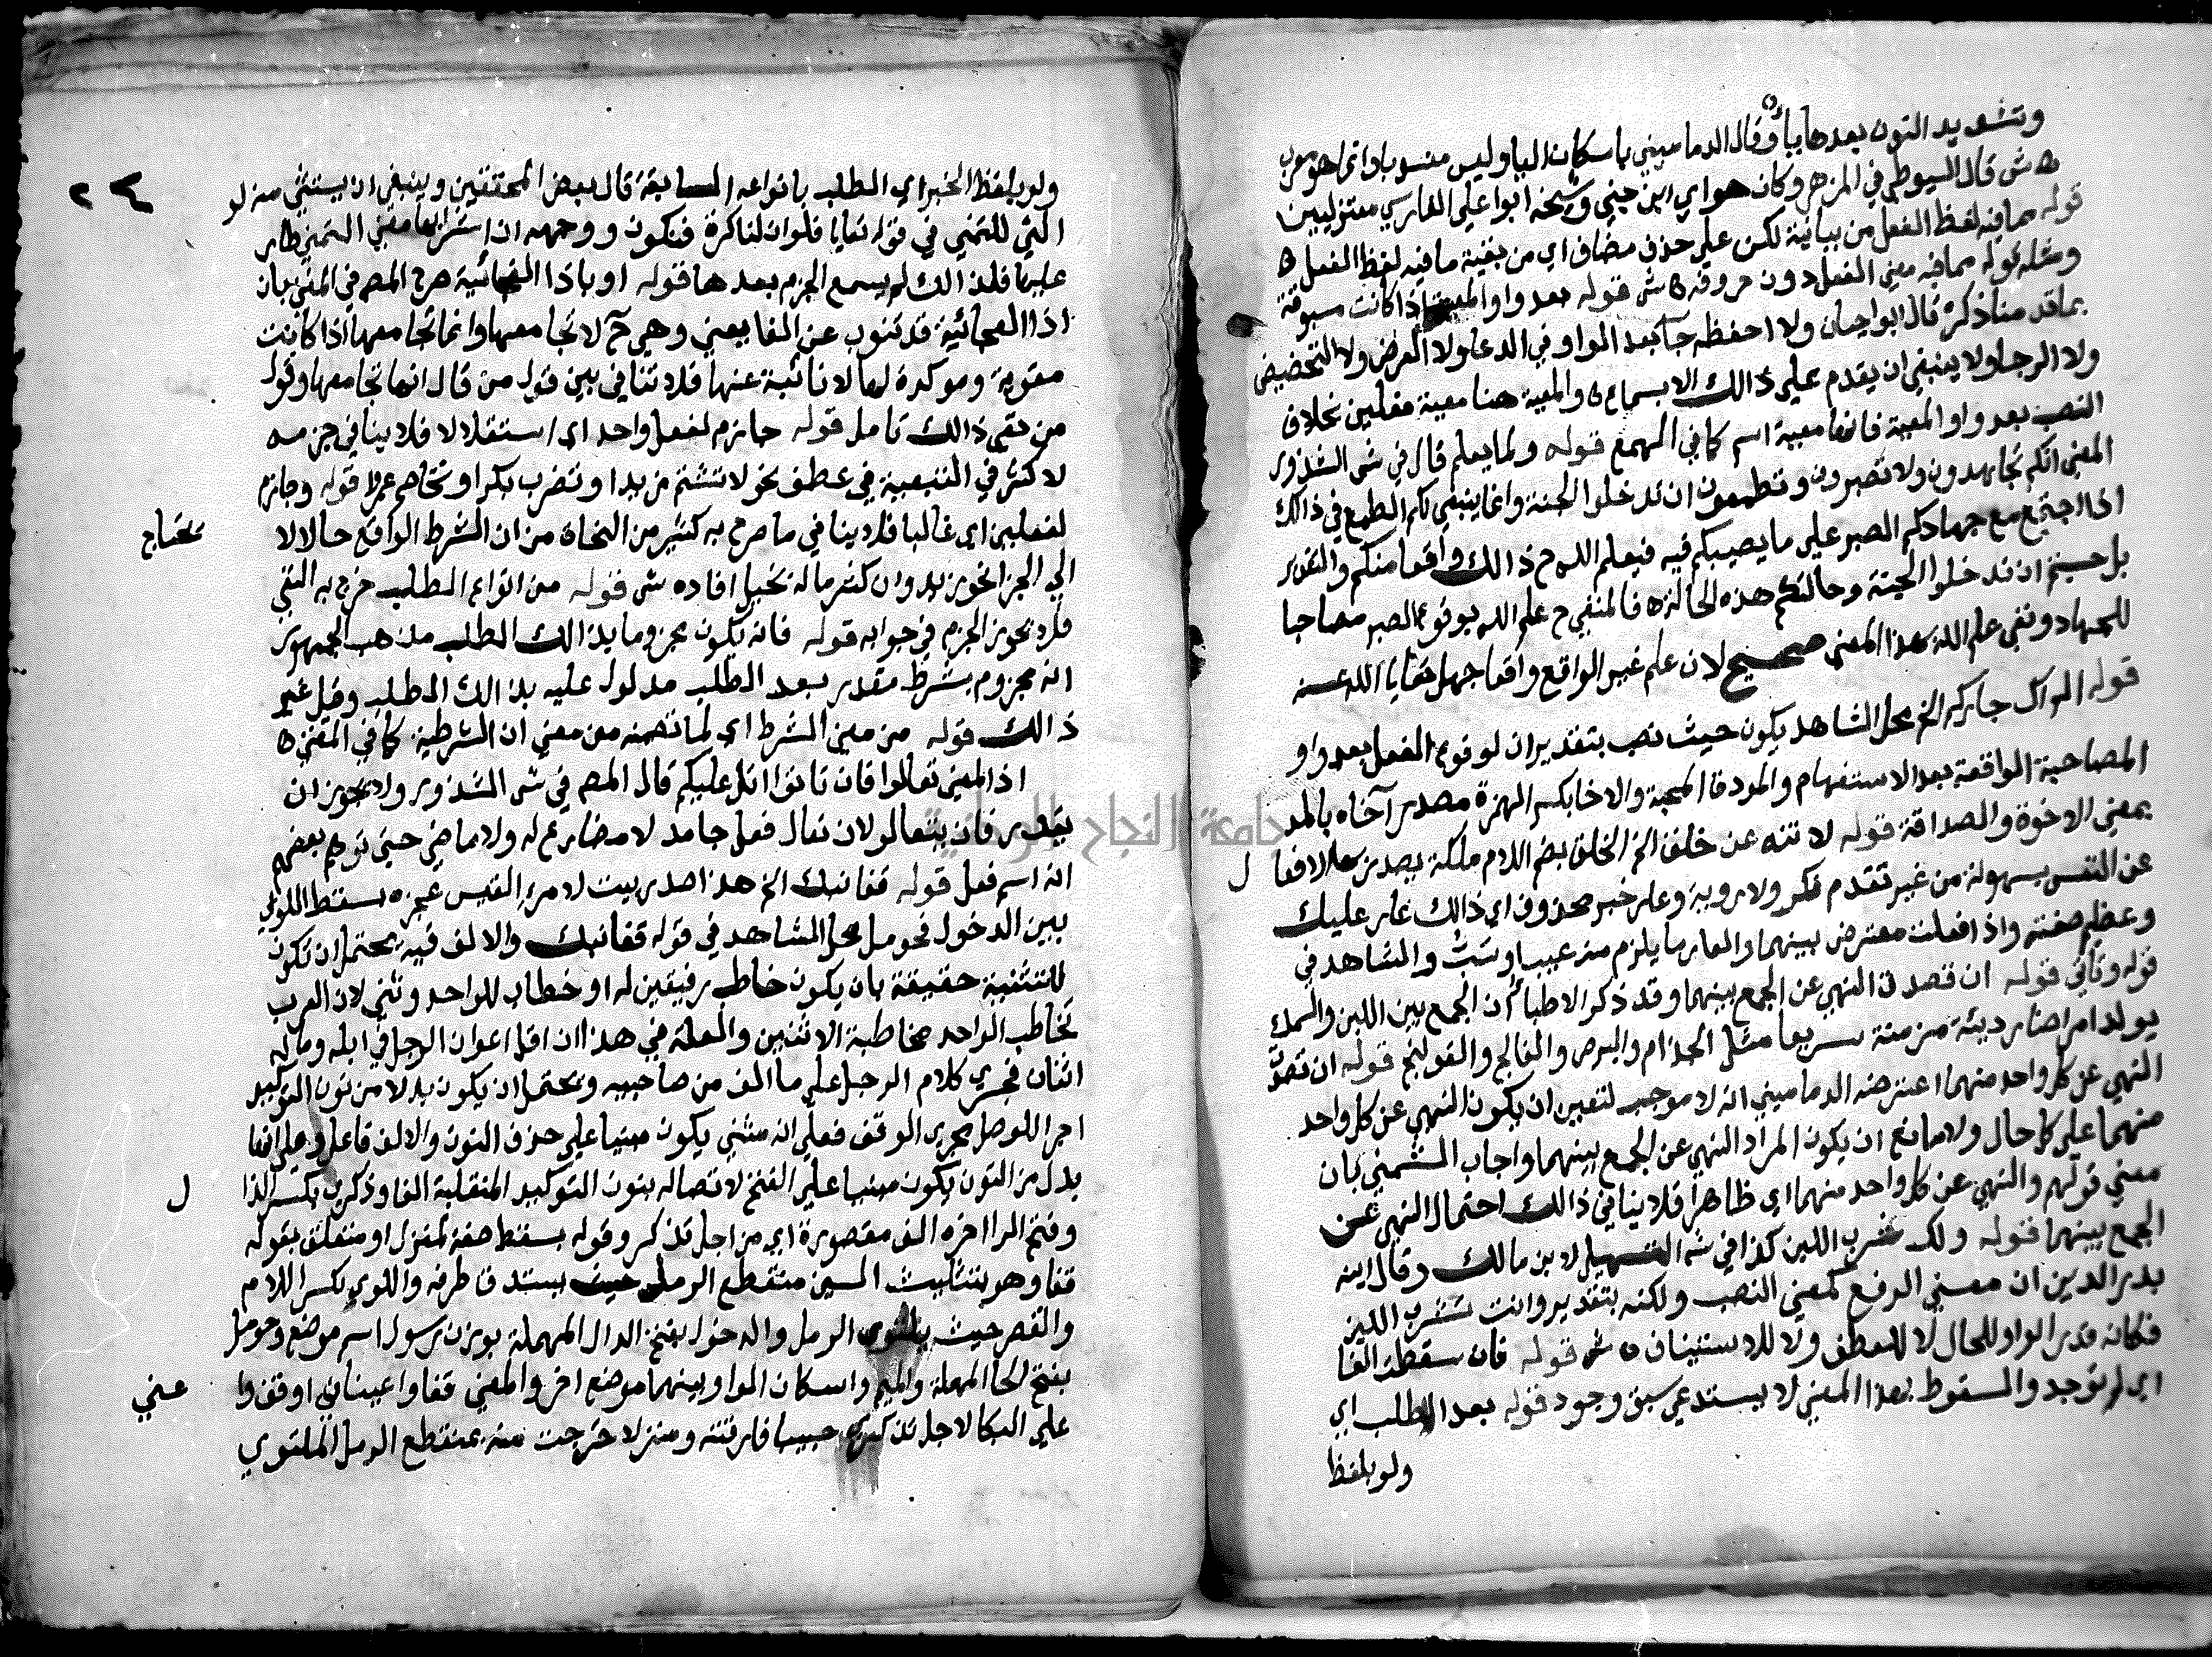 وتشديد النون بعدها ياء وقال الدماميني باسكان الياء وليس منسوبا وانما هو معرب
ه ش قال السيوطي في المزهر وكان هو اي ابن جني وشيخه ابوا علي الفارسي معتزليين
قوله مما فيه لفظ الفعل من بيانية لكن علي حذف مضاف اي من بقية ما فيه لفظ الفعل ه
ومثله قوله مما فيه معني الفعل دون حروفه ه ش قوله بعد واو المعية اذا كانت مسبوقة
بما قدمنا ذكره قال ابوا حيان ولا احفظه جا بعد الواو في الدعا ولا العرض ولا التحضيض
ولا الرجا ولا ينبغي ان يقدم علي ذالك الا بسماع ه والمعية هنا معية فعلين بخلاف
النصب بعد واو المعية فانها معية اسم كما في الهمع قوله ولما يعلم قال في ش الشذور
المعني انكم تجاهدون ولا تصبرون وتطمعون ان تدخلوا الجنة وانما ينبغي لكم الطمع في ذالك
اذا اجتمع مع جهادكم الصبر علي ما يصيبكم فيه فيعلم الله ح ذالك واقعا منكم والتقدير
بل حسبتم ان تدخلوا الجنة وحالتكم هذه الحالة ه فالمنفي ح علم الله بوقوع الصبر مصاحبا
للجهاد ونفي علم الله بهذا المعني صحيح لان علم غير الواقع واقعا جهل تعالي الله عنه
قوله الم اك جاركم الخ محل الشاهد يكون حيث نصب بتقدير ان لوقوع الفعل بعد واو
المصاحبة الواقعة بعد الاستفهام والمودة المحبة والاخا بكسر الهمزة مصدر آخاه بالمد
بمعني الاخوة والصداقة قوله لا تنه عن خلق الخ الخلق بضم اللام ملكة يصدر بها الافعال
عن النفس بسهولة من غير تقدم فكر ولا روية وعار خبر محذوف اي ذالك عار عليك
وعظيم صفته واذا فعلت معترض بينهما والعار ما يلزم منه عيب او سَبّ والشاهد في
قوله وتأتي قوله ان قصدت النهي عن الجمع بينهما وقد ذكر الاطبا أن الجمع بين اللبن والسمك
يولد امراضا رديئة مزمنة سريعا مثل الجذام والبرص والفالج والقولنج قوله ان قصدت
النهي عن كل واحد منهما اعترضه الدماميني انه لا موجب لتعيين ان يكون النهي عن كل واحد
منهما علي كل حال ولا مانع ان يكون المراد النهي عن الجمع بينهما واجاب الشمني بان
معني قولهم والنهي عن كل واحد منهما اي ظاهرا فلا ينافي ذالك احتمال النهي عن
الجمع بينهما قوله ولك شرب اللبن كذا في ش التسهيل لابن مالك وقال ابنه
بدر الدين ان معني الرفع كمعني النصب ولكنه بتقدير وانت تشرب اللبن
فكانه قدر الواو للحال لا للعطف ولا للاستيناف ه ش قوله فان سقطت الفا
اي لم توجد والسقوط بهذا المعني لا يستدعي سبق وجود قوله بعد الطلب اي
ولو بلفظ
٢٤
ولو بلفظ الخبر اي الطلب بانواعه السابقة قال بعض المحققين وينبغي ان يستثني منه لو
التي للتمني في قوله تعالي فلو ان لنا كرة فنكون ووجهه ان اشرابها معني التمني طار
عليها فلذالك لم يسمع الجزم بعدها قوله او باذا الفجائية صرح المص في المغني بان
اذا الفجائية قد تنوب عن الفا يعني وهي ح لا تجامعها وانما تجامعها اذا كانت
مقوية وموكدة لها لا نائبة عنها فلا تنافي بين قول من قال انها تجامعها وقول
من نفي ذالك تامل قوله جازم لفعل واحد اي استقلالا فلا ينافي جزمه
لاكثر في التبعية في عطف نحو لا تشتم زيدا وتضرب بكرا وتخاصم عمرا قوله وجازم
لفعلين اي غالبا فلا ينافي ما صرح به كثير من النحاة من ان الشرط الواقع حالا لا يحتاج
الي الجزا نحو زيد وان كثر ماله بخيل افاده ش قوله من انواع الطلب خرج به النفي
فلا يجوز الجزم في جوابه قوله فانه يكون مجزوما بذالك الطلب مذهب الجمهور
انه مجزوم بشرط مقدر بعد الطلب مدلول عليه بذالك الطلب وقيل غير
ذالك قوله من معني الشرط اي لما تضمنه من معني ان الشرطية كما في المغني ه
اذ المعني تعالوا فان تاتوا اتل عليكم قال المص في ش الشذور ولا يجوز ان
يقدر فان تتعالوا لان تعال فعل جامد لا مضارع له ولا ماضي حتي توهم بعضهم
انه اسم فعل قوله قفا نبك الخ هذا صدر بيت لامرء القيس عجزه بسقط اللوي
بين الدخول فحومل محل الشاهد في قوله قفا نبك والالف فيه يحتمل ان تكون
للتثنية حقيقة بان يكون خاطب رفيقين له او خطاب للواحد وثني لان العرب
تخاطب الواحد مخاطبة الاثنين والعلة في هذا ان اقل اعوان الرجل في ابله وماله
اثنان فجري كلام الرجل علي ما الف من صاحبيه ويحتمل ان يكون بدلا من نون التوكيد
اجرا للوصل مجري الوقف فعلي انه مثني يكون مبنيا علي حذف النون والالف فاعل وعلي انها
بدل من النون يكون مبنيا علي الفتح لاتصاله بنون التوكيد المنقلبة الفا وذكري بكسر الذال
وفتح الرا اخره الف مقصورة اي من اجل تذكر وقوله بسقط صفة لمنزل او متعلق بقوله
قفا وهو بتثليث السين منقطع الرمل حيث يستدق طرفه واللوي بكسر اللام
والقصر حيث يلتوي الرمل والدخول بفتح الدال المهملة بوزن رسول اسم موضع وحومل
بفتح الحا المهملة والميم واسكان الواو بينهما موضع اخر والمعني قفا واعيناني او قف واعني
علي البكا لاجل تذكري حبيبا فارقته ومنزلا خرجت منه بمنقطع الرمل الملتوي